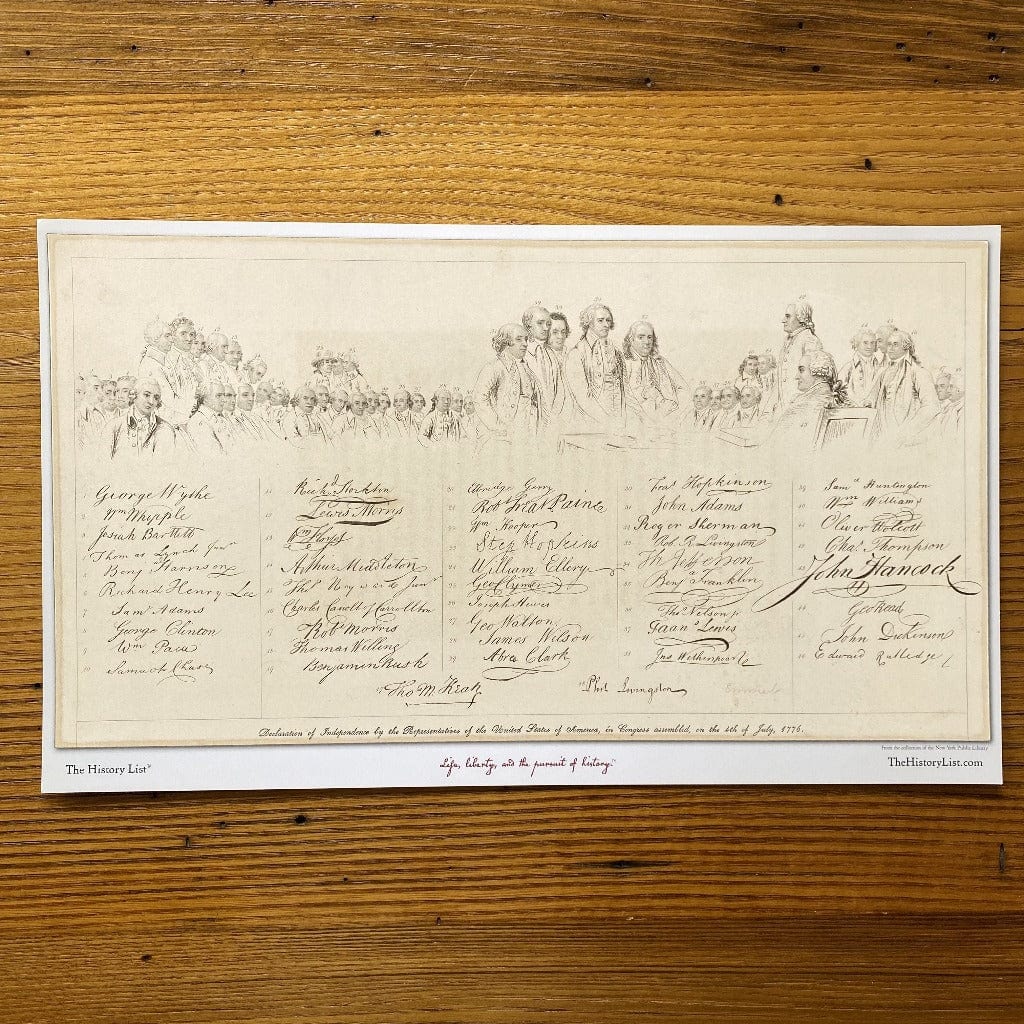 George Wythe
Wm Whipple
Josiah Bartlett
Thomas Lynch Junr
Benj Harrison
Richard Henry Lee
Saml Adams
George Clinton
Wm Paca
Samuel Chase
Richd Stockton
Lewis Morris
Wm Floyd
Arthur Middleton
Thos Heyward Junr
Charles Carroll of Carrollton
Robt Morris
Thomas Willing
Benjamin Rush
Elbridge Gerry
Robt Treat Paine
Wm Hooper
Step Hopkins
William Ellery
Geo Clymer
Joseph Hewes
Geo Walton
James Wilson
Abra Clark
Fras Hopkinson
John Adams
Roger Sherman
Robt R. Livingston
Th Jefferson
Benj Franklin
Thos Nelson jr
Frans Lewis
Jno Witherspoon
Saml Huntington
Wm Williams
Oliver Wolcott
Chas Thompson
John Hancock
Geo Read
John Dickinson
Edward Rutledge
Tho M. Kean
Phil Livingston
Declaration of Independence by the Representatives of the United States of America, in Congress assembled, on the 4th of July, 1776.
From the collection of the New York Public Library
The History List
Life, liberty, and the pursuit of history.
TheHistoryList.com